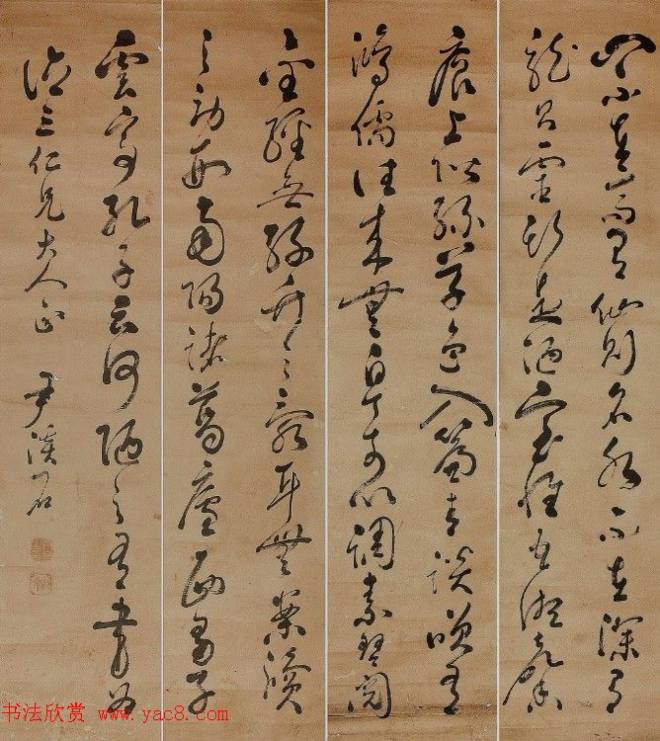 山不在高有仙則名水不在深有
龍則靈斯是陋室惟吾德馨
痕上階綠草色入簾青談笑有
鴻儒往來無白丁可以調素琴閱
金經無絲竹之亂耳無案牘
之勞形南陽諸葛廬西蜀子
雲亭孔子云何陋之有書為
三仁兄大人正 尹溪石
书法欣赏 www.yac8.com